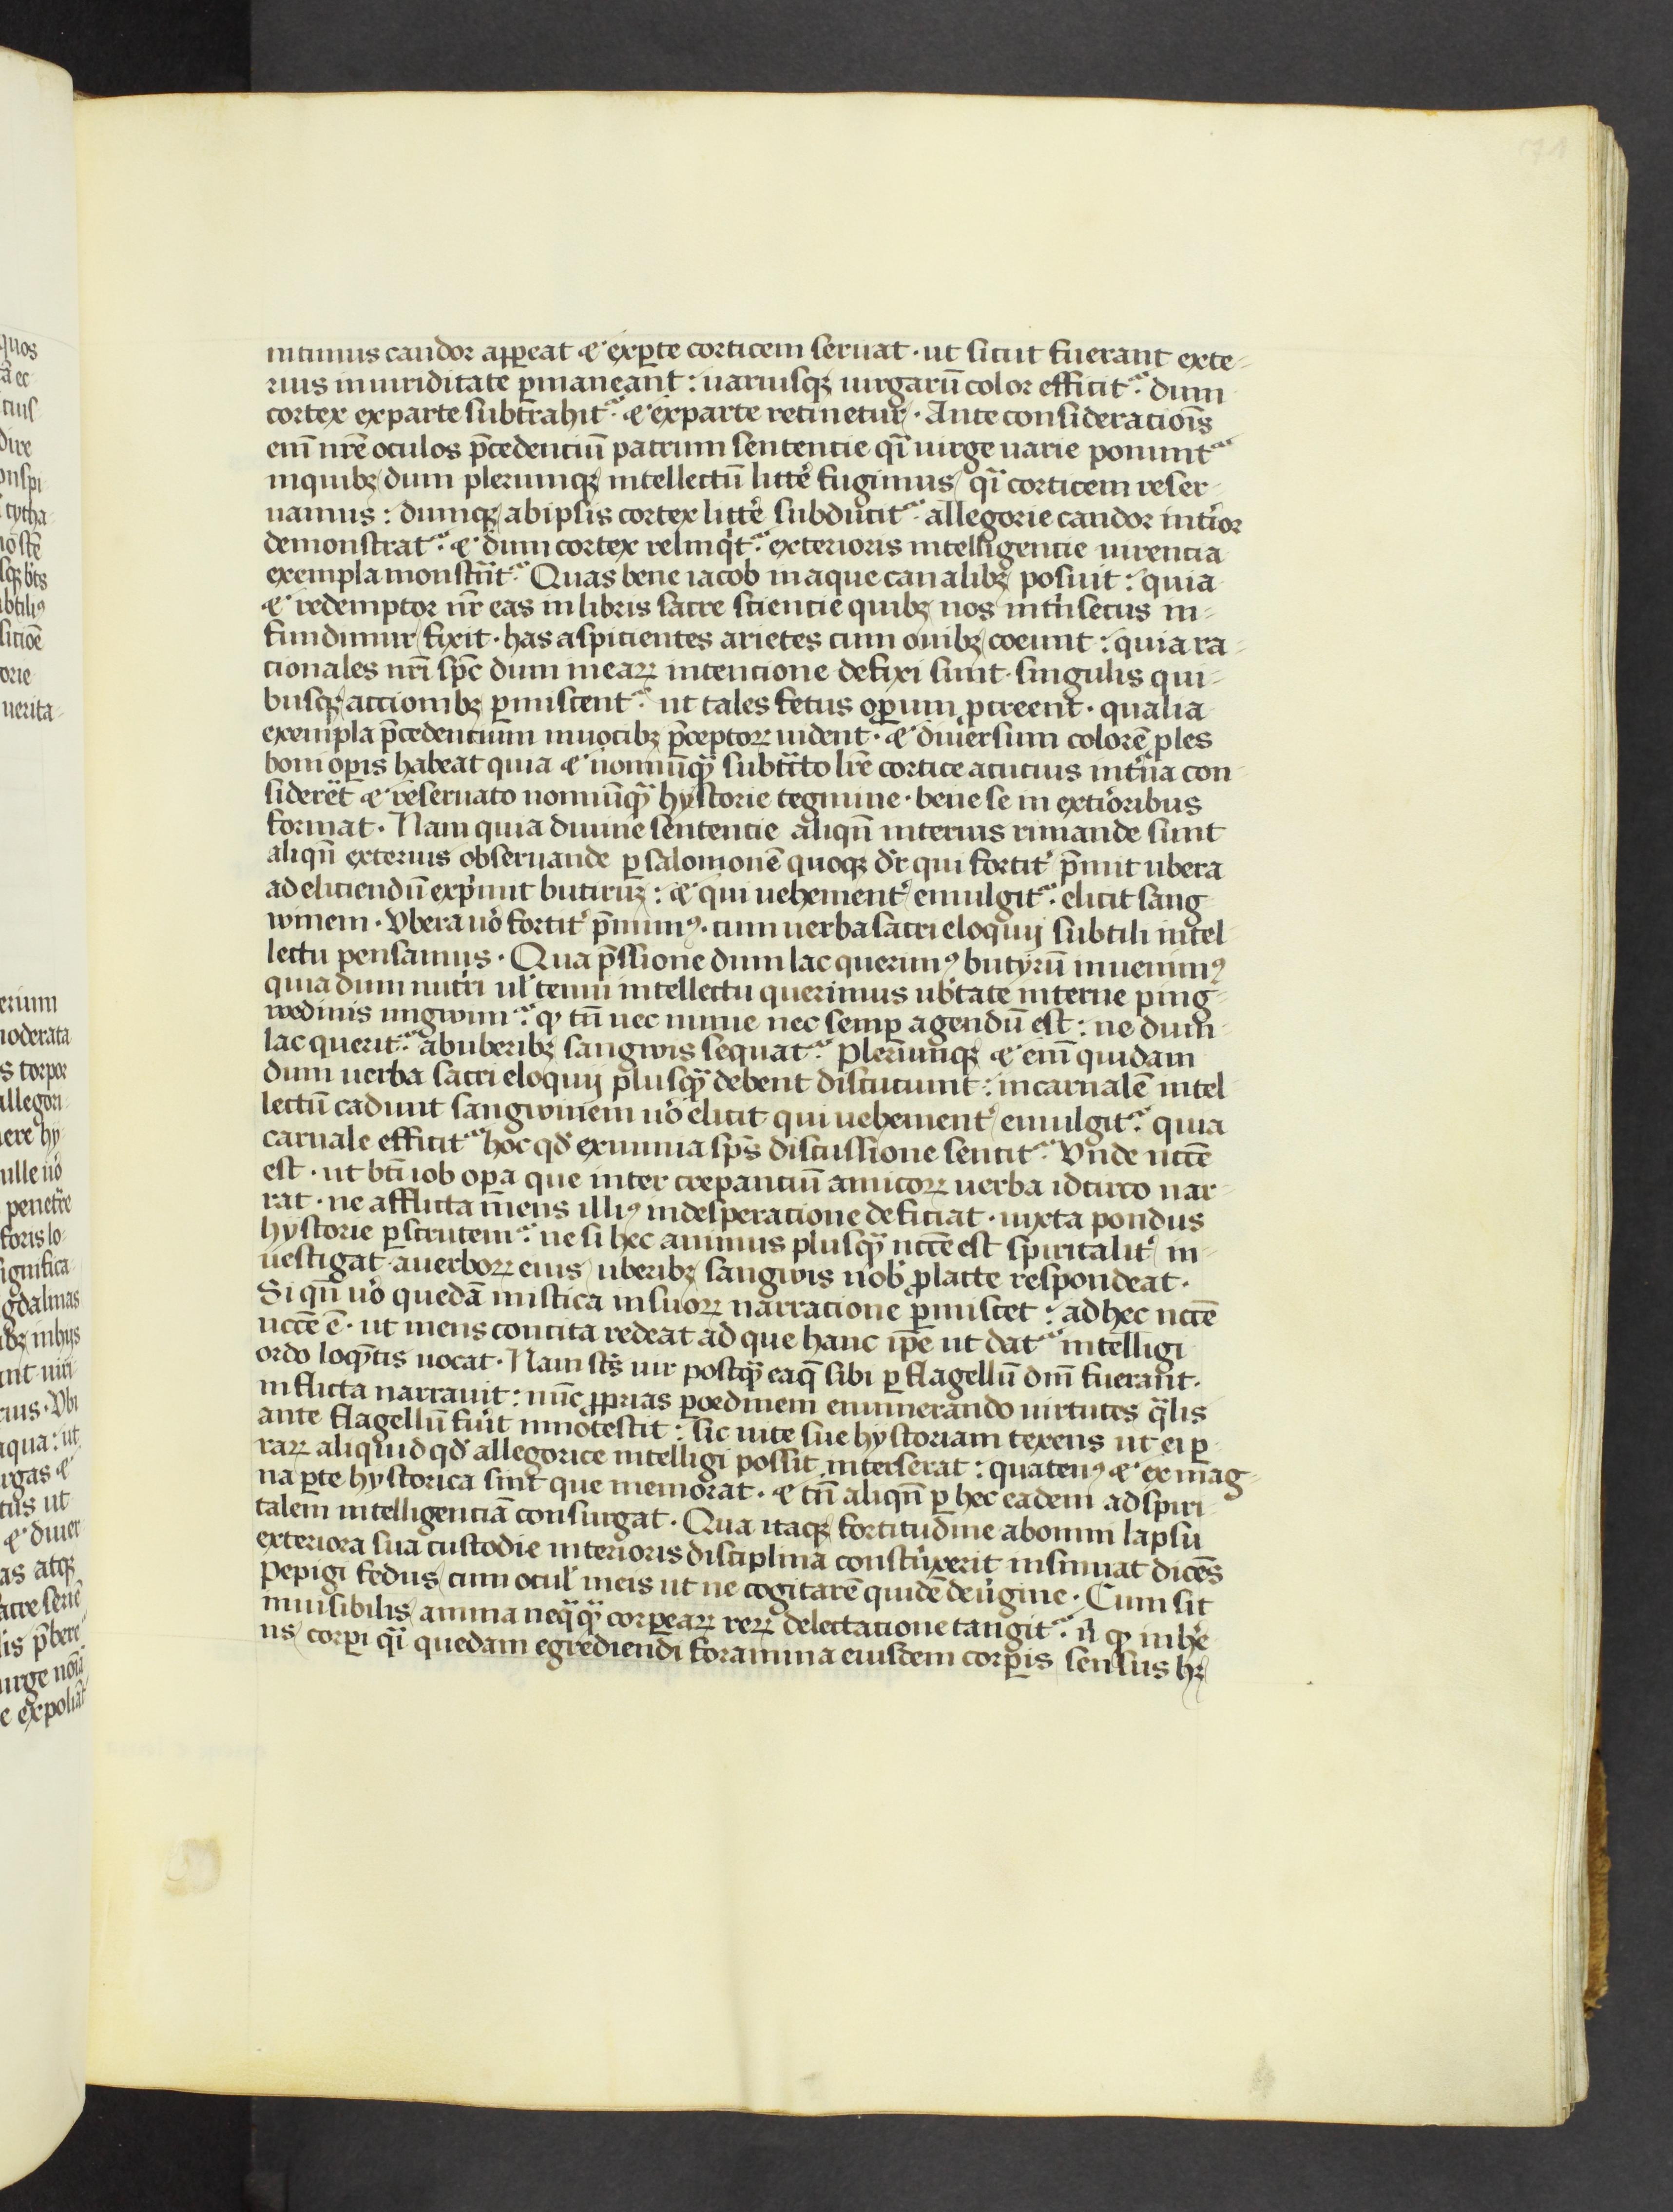 intimus candor appeat & exꝑte corticem seruat · ut sicut fuerant exte-
rius in uiriditate ꝑmaneant : uariusqꝫ uirgarū color efficit᷑ · dum
cortex ex parte subtrahit᷑ · & ex parte retinetur · Ante consideracioīs
enī nrē oculos p̄cedenciū patrum sentencie q̄i uirge uarie ponunt᷑
in quibꝫ dum plerumqꝫ intellectū litte᷒ fugimus q̄i corticem reser-
uamus : dumqꝫ ab ipsis cortex litte᷒ subducit᷑ · allegorie candor intior
demonstrat᷑ · & dum cortex relinqͥt᷑ · exterioris intelligencie uirencia
exempla monstrāt᷑ · Quas bene iacob in aque canalibꝫ posuit : quia
& redemptor nr̄ eas in libris sacre sciencie quibꝫ nos intͥnsecus in-
fundimur fixit · has aspicientes arietes cum ouibꝫ coeunt : quia ra-
cionales nrī spc̄ dum in earꝝ intencione defixi sunt · singulis qui-
busqꝫ accionibꝫ ꝑmiscent᷑ · ut tales fetus oꝑum ꝓcreent · qualia
exempla p̄cedentium in uocibꝫ p̄ceptorꝝ uident · & diuersum colorē ꝓles
boni oꝑis habeat quia & nonnūqͣꝫ subtͣcto lrē cortice acucius intͥna con-
siderēt & reseruato nonnūqͣꝫ hystorie tegmine · bene se in exterioribus
format · Nam quia diuine sentencie aliqn̄ interius rimande sunt
aliqn̄ exterius obseruande ꝑ salomonē quoqꝫ dr̄ qui fortit᷒ p̄mit ubera
ad eliciendū expͥmit butirꝫ : & qui uehement᷒ emulgit᷑ · elicit sang
winem · Vbera uō fortit᷒ p̄mimꝰ · cum uerba sacri eloquij subtili intel-
lectu pensamus · Qua p̄ssione dum lac querimꝰ butyrū inuenimꝰ
quia dum nutri ul᷒ tenui intellectu querimus ub᷒tate interne ping-
wedinis ungwim᷑ · qͦ tn̄ nec nimie nec semꝑ agendū est : ne dum
lac querit᷑ · ab uberibꝫ sangwis sequat᷑ · plerumqꝫ & enī quidam
dum uerba sacri eloquij plusqͣꝫ debent discuciunt : in carnalē intel-
lectū cadunt sangwinem uō elicit qui uehement᷒ emulgit᷑ · quia
carnale efficit᷑ hoc qd᷒ ex nimia sps̄ discussione sentit᷑ · Vnde nccē
est · ut btī iob oꝑa que inter crepanciū amicorꝝ uerba idcirco nar-
rat · ne afflicta mens illiꝰ in desperacione deficiat · iuxta pondus
hystorie ꝑscrutem᷑ · ne si hec animus plusqͣꝫ nccē est spiritalit᷒ in-
uestigat a uerborꝝ eius uberibꝫ sangwis nob᷒ ꝓ lacte respondeat ·
Si qn̄ uō quedā mistica in suorꝝ narracione ꝑmiscet : ad hec nccē
nccē ē · ut mens concita redeat ad que hanc ip̄e ut dat᷑ intelligi
ordo loqn̄tis uocat · Nam scs̄ uir postqͣꝫ ea q̄ sibi ꝑ flagellū dnī fuerant ·
inflicta narrauit : nūc ꝓprias ꝑ oꝛdinem enumerando uirtutes qͣlis
ante flagellū fuit innotescit : sic uite sue hystoriam texens ut ei ꝑ
rarꝝ aliquid qd᷒ allegorice intelligi possit interserat : quatenꝰ & ex mag-
na ꝑte hystorica sint que memorat · & tn̄ aliqn̄ ꝑ hec eadem ad spiri-
talem intelligenciā consurgat · Qua itaqꝫ fortitudine ab omni lapsu
exteriora sua custodie interioris disciplina constrixerit insinuat dicēs
Pepigi fedus cum ocul᷒ meis ut ne cogitarē quidē de uͥgine · Cum sit
inuisibilis anima neqͣqͣꝫ corꝑearꝝ rerꝝ delectacione tangit᷑ · n̄ qͦ inhe᷒
ns corꝑi q̄i quedam egrediendi foramina eiusdem corꝑis sensus hꝫ